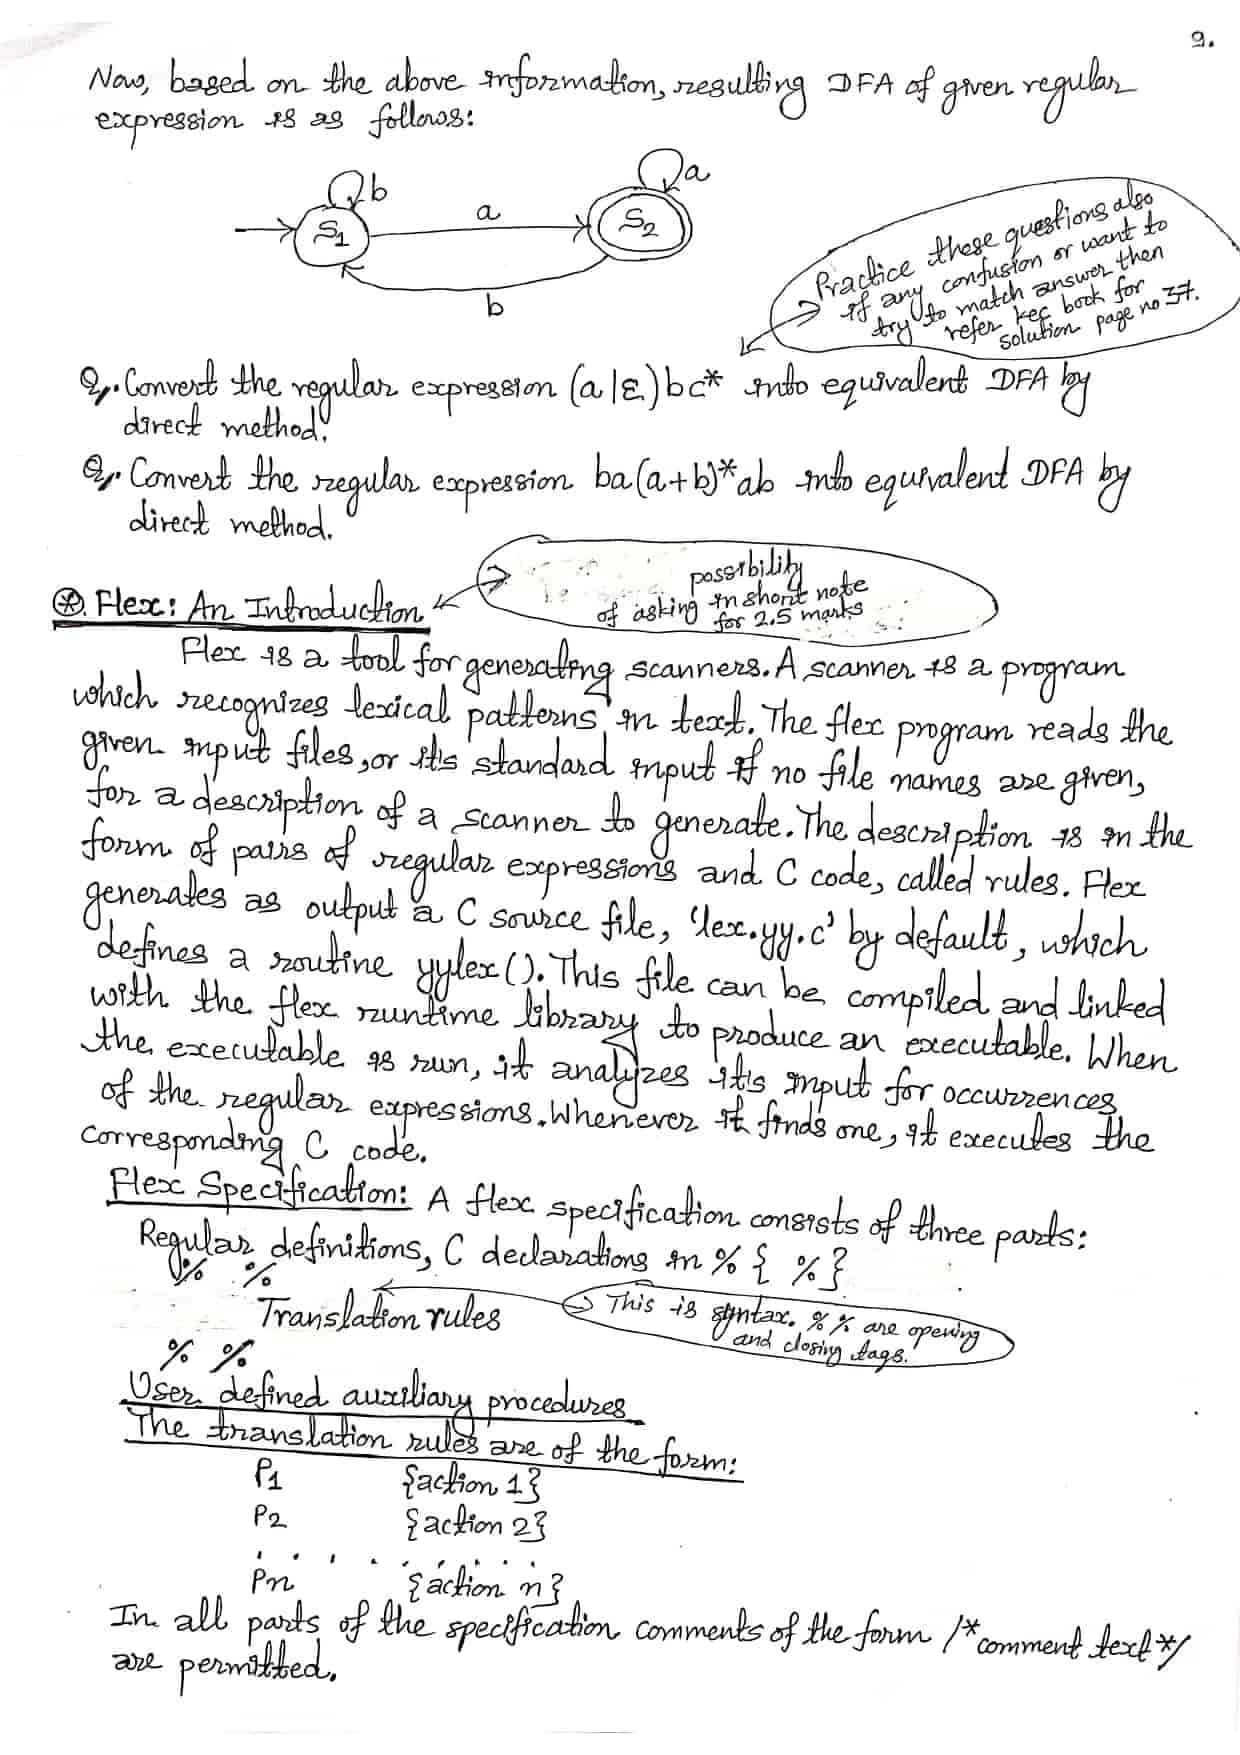 9.
Now, based on the above information, resulting DFA of given regular
expression is as follows:
b
a
S1
a
S2
b
Practice these questions also
if any confusion or want to
try to match answer then
refer kec book for
solution page no 37.
Q. Convert the regular expression (a|ε)bc* into equivalent DFA by
direct method.
Q. Convert the regular expression ba(a+b)*ab into equivalent DFA by
direct method.
possibility
of asking in short note
for 2.5 marks
⊛. Flex: An Introduction
Flex is a tool for generating scanners. A scanner is a program
which recognizes lexical patterns in text. The flex program reads the
given input files, or it's standard input if no file names are given,
for a description of a scanner to generate. The description is in the
form of pairs of regular expressions and C code, called rules. Flex
generates as output a C source file, 'lex.yy.c' by default, which
defines a routine yylex(). This file can be compiled and linked
with the flex runtime library to produce an executable. When
the executable is run, it analyzes it's input for occurrences
of the regular expressions. Whenever it finds one, it executes the
corresponding C code.
Flex Specification: A flex specification consists of three parts:
Regular definitions, C declarations in % { %}
% %
Translation rules
This is syntax. % % are opening
and closing tags.
% %
User defined auxiliary procedures
The translation rules are of the form:
P1 {action 1}
P2 {action 2}
. . . . . . . . . . .
Pn {action n}
In all parts of the specification comments of the form /*comment text*/
are permitted.